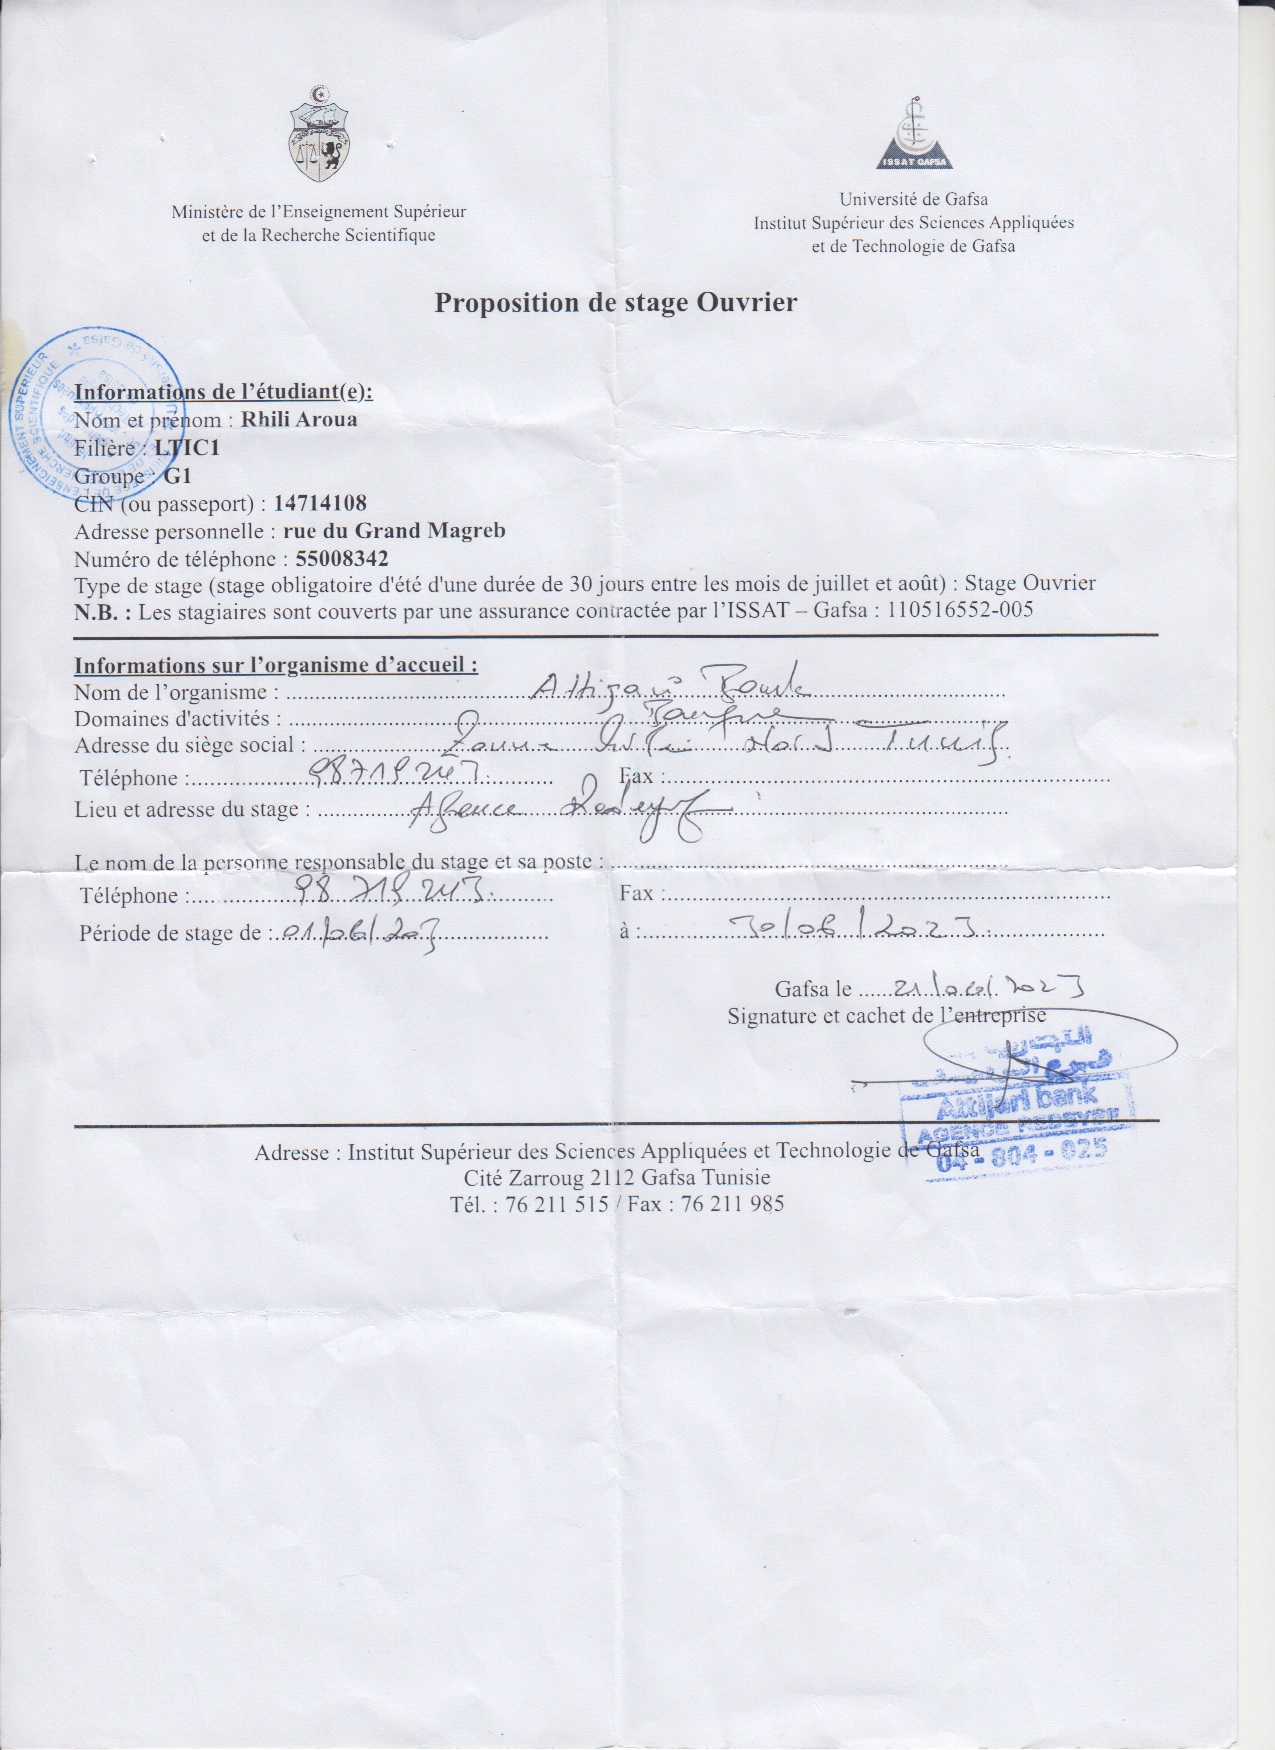 ISSAT GAFSA
Ministère de l'Enseignement Supérieur
et de la Recherche Scientifique
Université de Gafsa
Institut Supérieur des Sciences Appliquées
et de Technologie de Gafsa
Proposition de stage Ouvrier
Informations de l'étudiant(e):
Nom et prénom : Rhili Aroua
Filière : LTIC1
Groupe : G1
CIN (ou passeport) : 14714108
Adresse personnelle : rue du Grand Magreb
Numéro de téléphone : 55008342
Type de stage (stage obligatoire d'été d'une durée de 30 jours entre les mois de juillet et août) : Stage Ouvrier
N.B. : Les stagiaires sont couverts par une assurance contractée par l'ISSAT – Gafsa : 110516552-005
Informations sur l'organisme d'accueil :
Nom de l'organisme : Attijari Bank
Domaines d'activités : Banque
Adresse du siège social : Nord Tunis
Téléphone : 98719243 Fax :
Lieu et adresse du stage : Agence Redeyef
Le nom de la personne responsable du stage et sa poste :
Téléphone : 98 719 243 Fax :
Période de stage de : 01/06/203 à : 30/06/2023
Gafsa le 21/06/2023
Signature et cachet de l'entreprise
Attijari bank
AGENCE REDEYEF
04 - 804 - 025
Adresse : Institut Supérieur des Sciences Appliquées et Technologie de Gafsa
Cité Zarroug 2112 Gafsa Tunisie
Tél. : 76 211 515 / Fax : 76 211 985